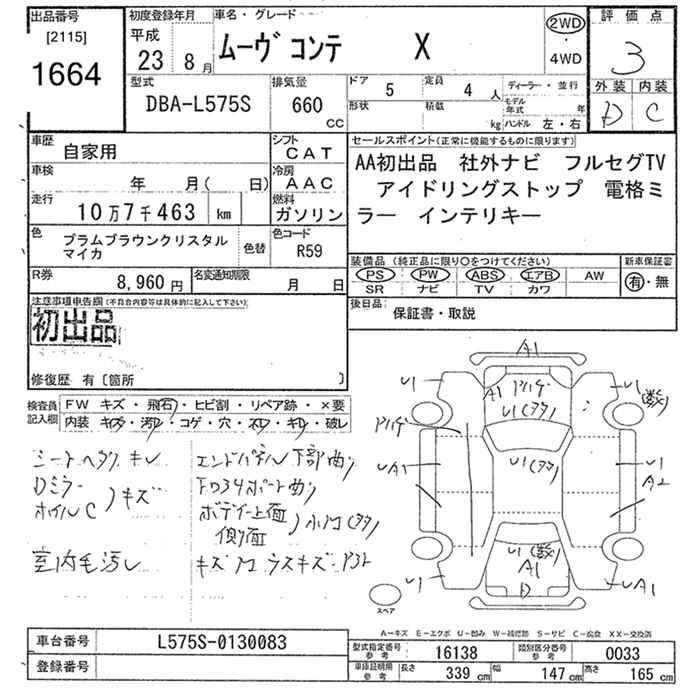 出品番号
[2115]
1664
初度登録年月
平成
23年 8月
車名・グレード
ムーヴ コンテ X
2WD
・
4WD
評価点
3
外装 内装
D C
型式
DBA-L575S
排気量
660
CC
ドア 5
定員 4 人
形状 積載 kg
ディーラー・並行
モデル年式 年
ハンドル 左・右
車歴 自家用
シフト CAT
車検 年 月( 日)
冷房 AAC
走行 10万7千463 km
燃料 ガソリン
色 プラムブラウンクリスタル
マイカ
色替
色コード R59
R券 8,960円
名変通知期限 月 日
セールスポイント(正常に機能するものに限ります)
AA初出品 社外ナビ フルセグTV
アイドリングストップ 電格ミ
ラー インテリキー
装備品(純正品に限り○をつけてください)
PS PW ABS エアB AW
SR ナビ TV カワ
新車保証書
有・無
後日品 保証書・取説
注意事項申告欄(不具合内容等は具体的に記入して下さい)
初出品
修復歴 有〔箇所 〕
検査員記入欄
FW キズ・飛石・ヒビ割・リペア跡・×要
内装 キズ・汚レ・コゲ・穴・スレ・キレ・破レ
シートヘタリ キレ
Dミラー
ホイルC
キズ
室内毛汚レ
エンドパネル下部曲り
下回りサポート曲り
ボデイー上面
側面
小凹(多)
A1
U1
A1
U1(多)
U1
(数)
UA1
U1(多)
U1
A2
U1(数)
A1
D
U1
UA1
スペア
A-キズ E-エクボ U-凹み W-補修跡 S-サビ C-腐食 XX-交換済
車台番号 L575S-0130083
登録番号
型式指定番号
参考
16138
類別区分番号
参考
0033
車庫証明用
参考
長さ 339 cm 幅 147 cm 高さ 165 cm